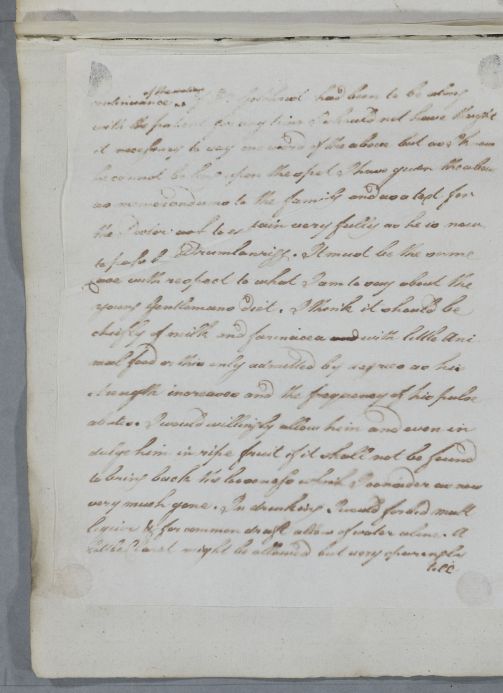 of the
continuance . If Dr had been to be along
with the patient for any time I should not have thought
it necessary to say one word of the above but as I know
he cannot be long upon the spot I have given the above
as memorandums to the family and as a text for
the Doctor to very fully as he is now
to pass by Drumlanrig. It must be the same
case with respect to what I am to say about the
young Gentlemans diet. I think it should be
chiefly of milk and farinacea and with little Ani
mal food or this only admitted by degrees as his
strength increases and the frequency of his pulse
abates. I would willingly allow him and even in
dulge him in ripe fruit if it shall not be found
to bring back his looseness which I consider as now
very much gone. In drinking I would forbid malt
liquor & for common draft allow of water alone. A
little Claret might be allowed but very sparingly
till